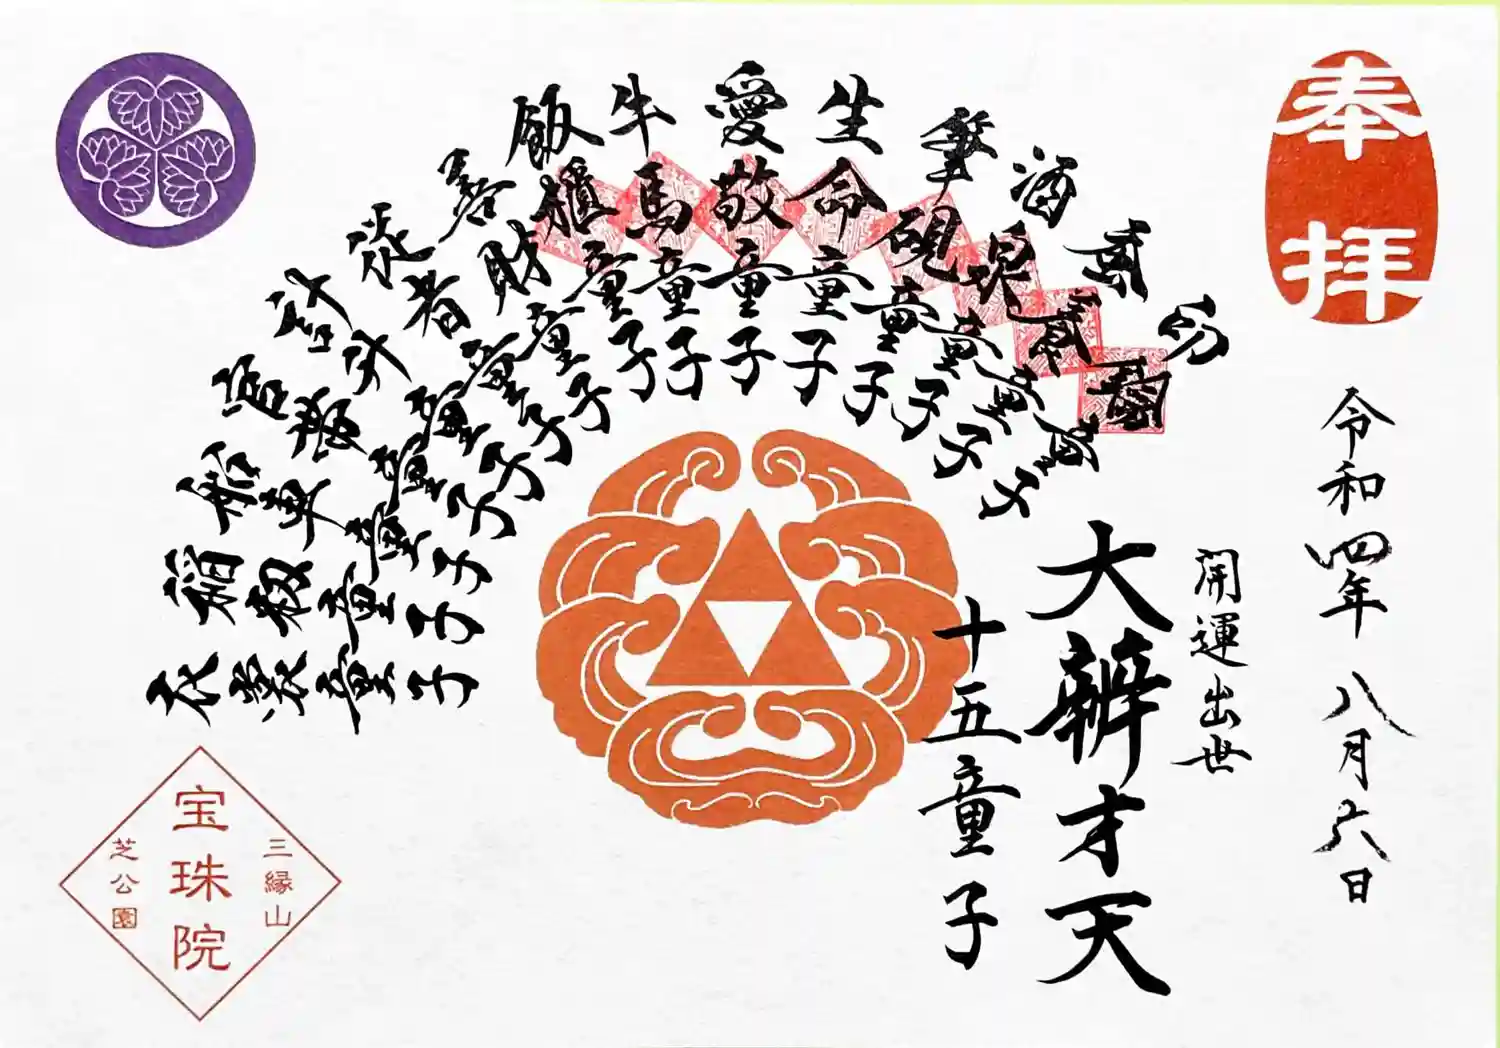 奉拝
令和四年八月六日
開運出世
大辨才天
十五童子
酒泉童子
筆硯童子
生命童子
愛敬童子
牛馬童子
飯櫃童子
善財童子
従者童子
計升童子
官帯童子
船車童子
稲籾童子
衣裳童子
三縁山
宝珠院
芝公園